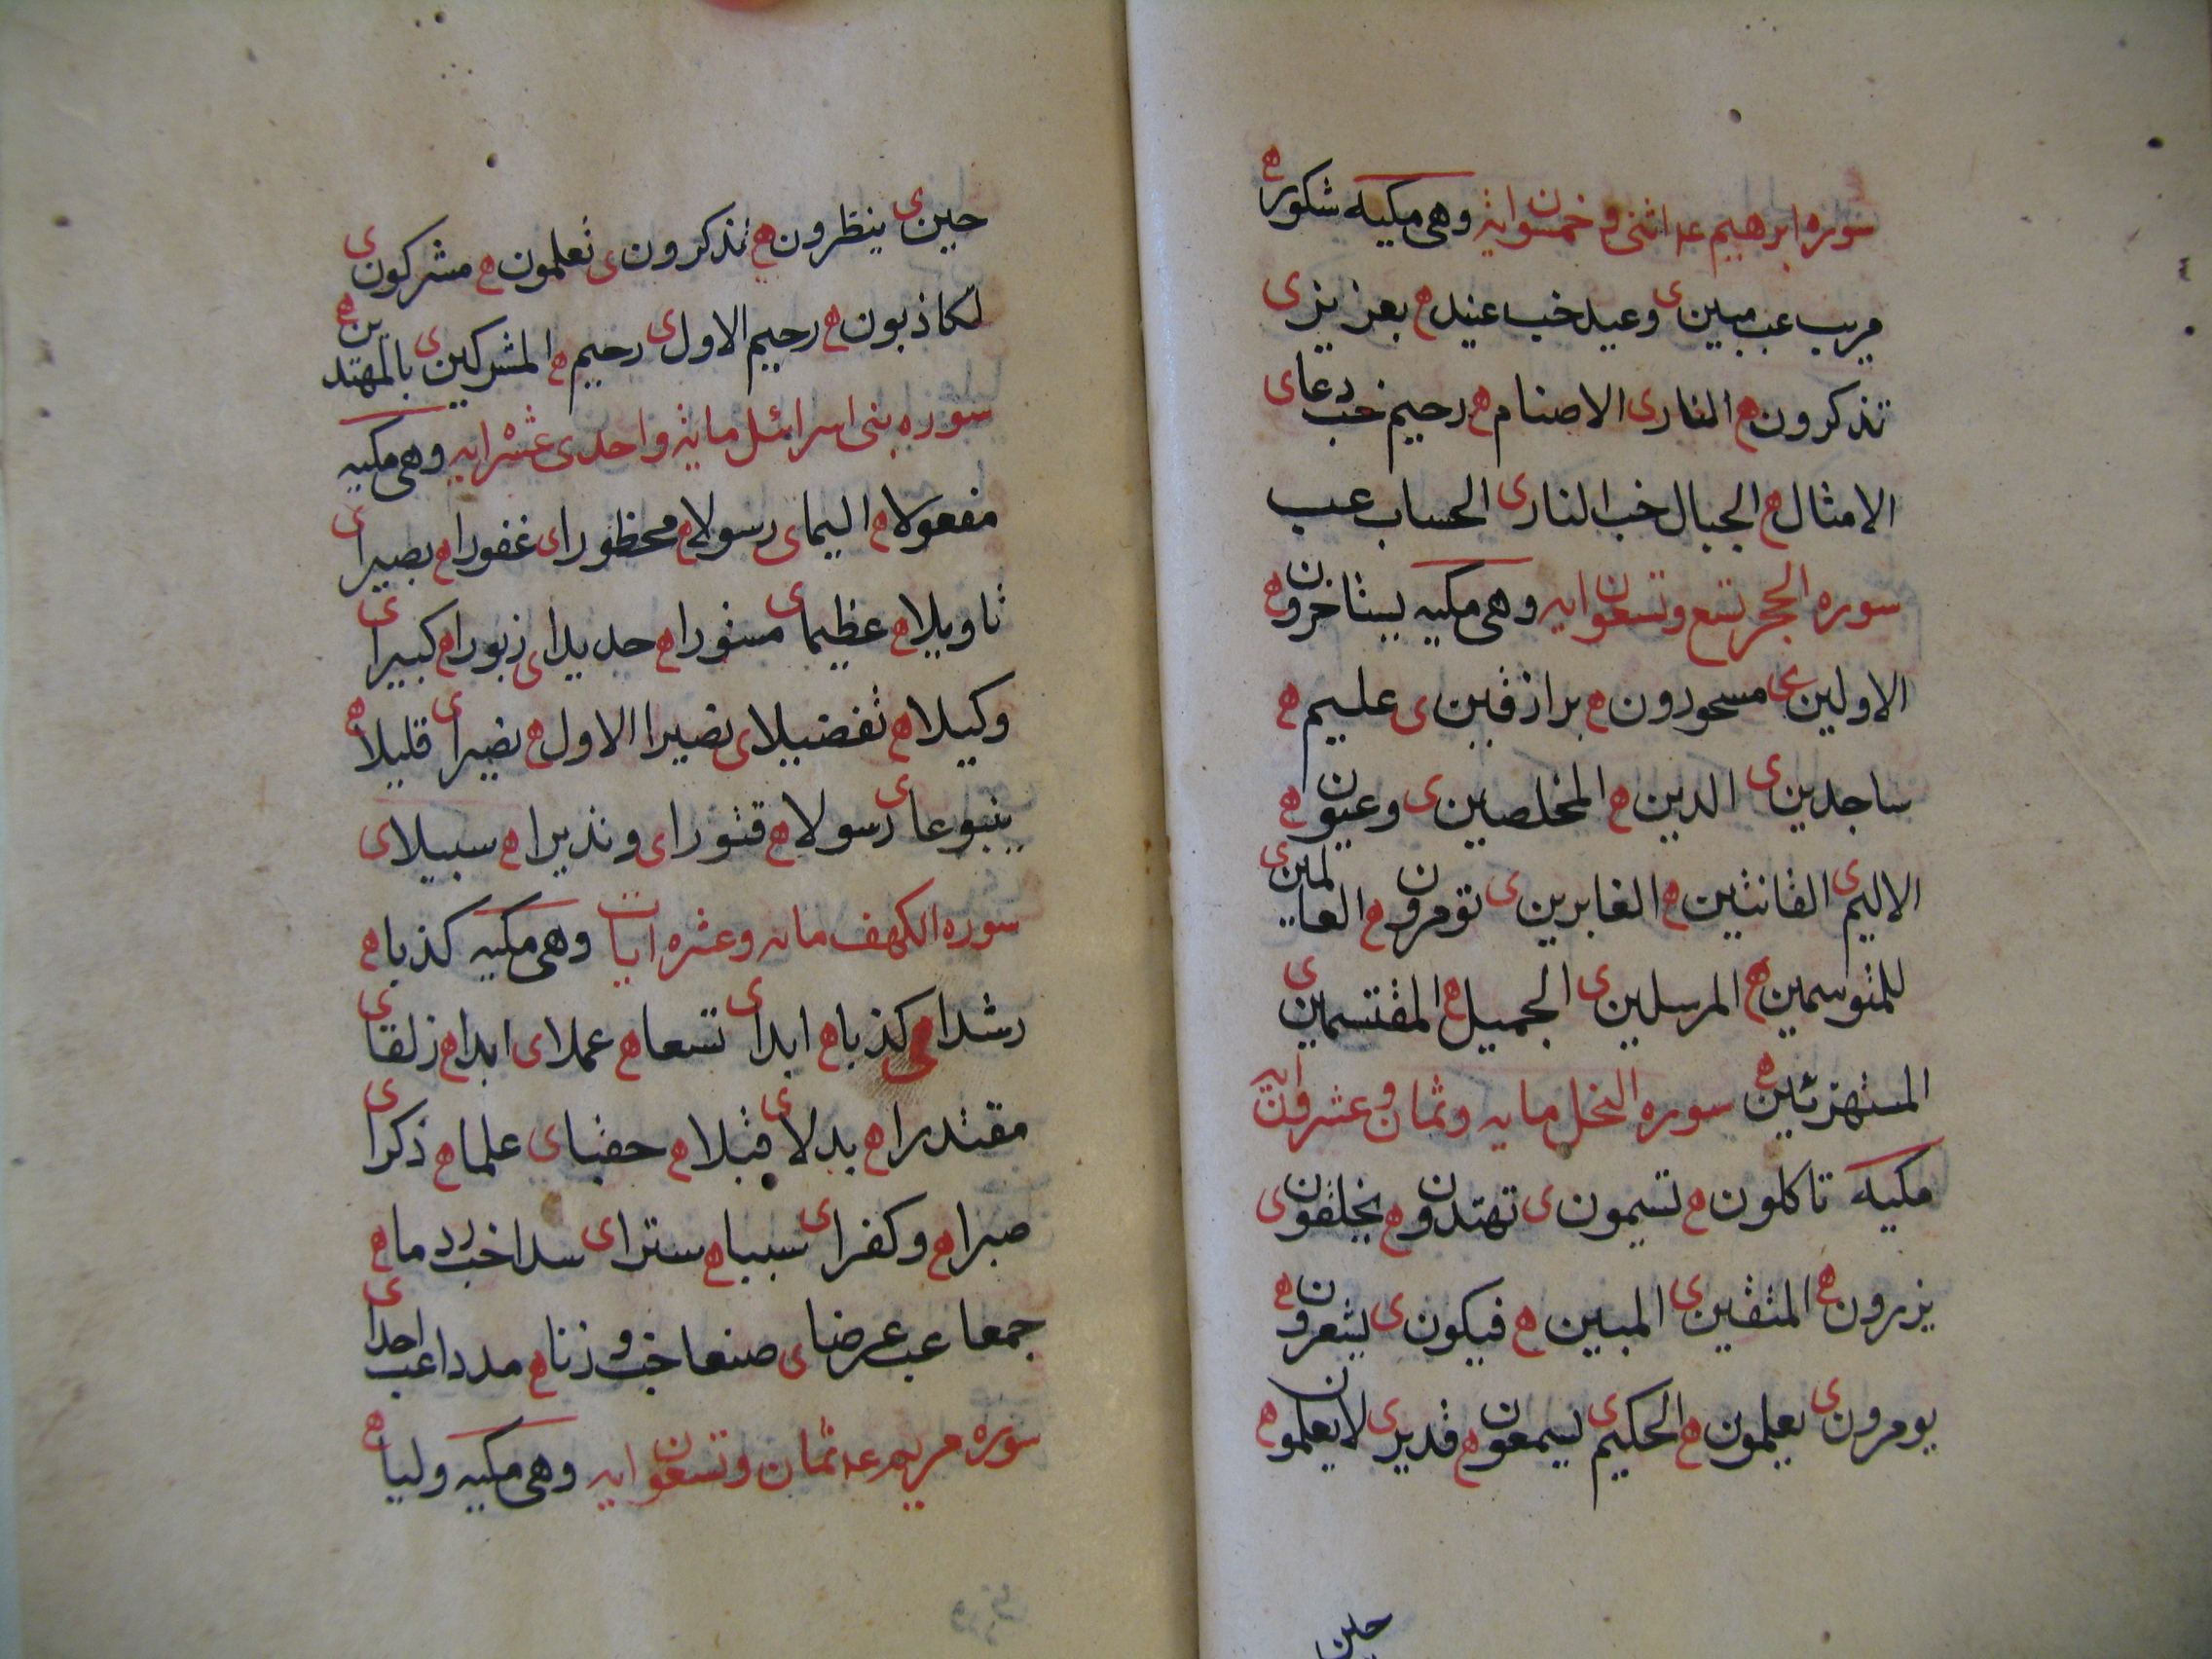 سوره ابرهيم عم اثنى و خمسون ايه وهى مكيه شكور ه
مريب عب مبين ى وعيد خب عنيد ه بعزيز ى
تذكرون ه النار ى الاصنام ه رحيم خب دعا ى
الامثال ه الجبال خب النار ى الحساب عب
سوره الحجر تسع وتسعون ايه وهى مكيه يستاخرون ه
الاولين ى مسحورون ه برازقين ى عليم ه
ساجدين ى الدين ه المخلصين ى وعيون ه
الاليم ى القانتين ه الغابرين ى تؤمرون ه العالمين ى
للمتوسمين ه المرسلين ى الجميل ه المقتسمين ى
المستهزئين ه سوره النحل مايه وثمان وعشرون ايه
مكيه تاكلون ه تسيمون ى تهتدون ه يخلقون ى
يزرون ه المتقين ى المبين ه فيكون ى يشعرون ه
يومرون ى يعلمون ه الحكيم ى يسمعون ه قدير ى لا يعلمون ه
حين
حين ى ينظرون ه تذكرون ى تعلمون ه مشركون ى
لكاذبون ه رحيم الاول ى رحيم ه المشركين ى بالمهتدين ه
سوره بنى اسرائل مايه واحدى عشر ايه وهى مكيه
مفعولا ه اليما ى رسولا ه محظورا ى غفورا ه بصيرا ى
تاويلا ه عظيما ى مستورا ه حديدا ى زبورا ه كبيرا ى
وكيلا ه تفضيلا ى نصيرا الاول ه نصيرا ى قليلا ه
ينبوعا ى رسولا ه قتورا ى ونذيرا ه سبيلا ى
سوره الكهف مايه وعشره ايات وهى مكيه كذبا ه
رشدا ى كذبا ه ابدا ى تسعا ه عملا ى ابدا ه زلقا ى
مقتدرا ه بدلا ى قبلا ه حقبا ى علما ه ذكرا ى
صبرا ه وكفرا ى سببا ه سترا ى سدا خب ردما ه
جمعا عب عرضا ى صنعا خب وزنا ه مددا عب احدا ى
سوره مريم عم ثمان وتسعون ايه وهى مكيه وليا ه